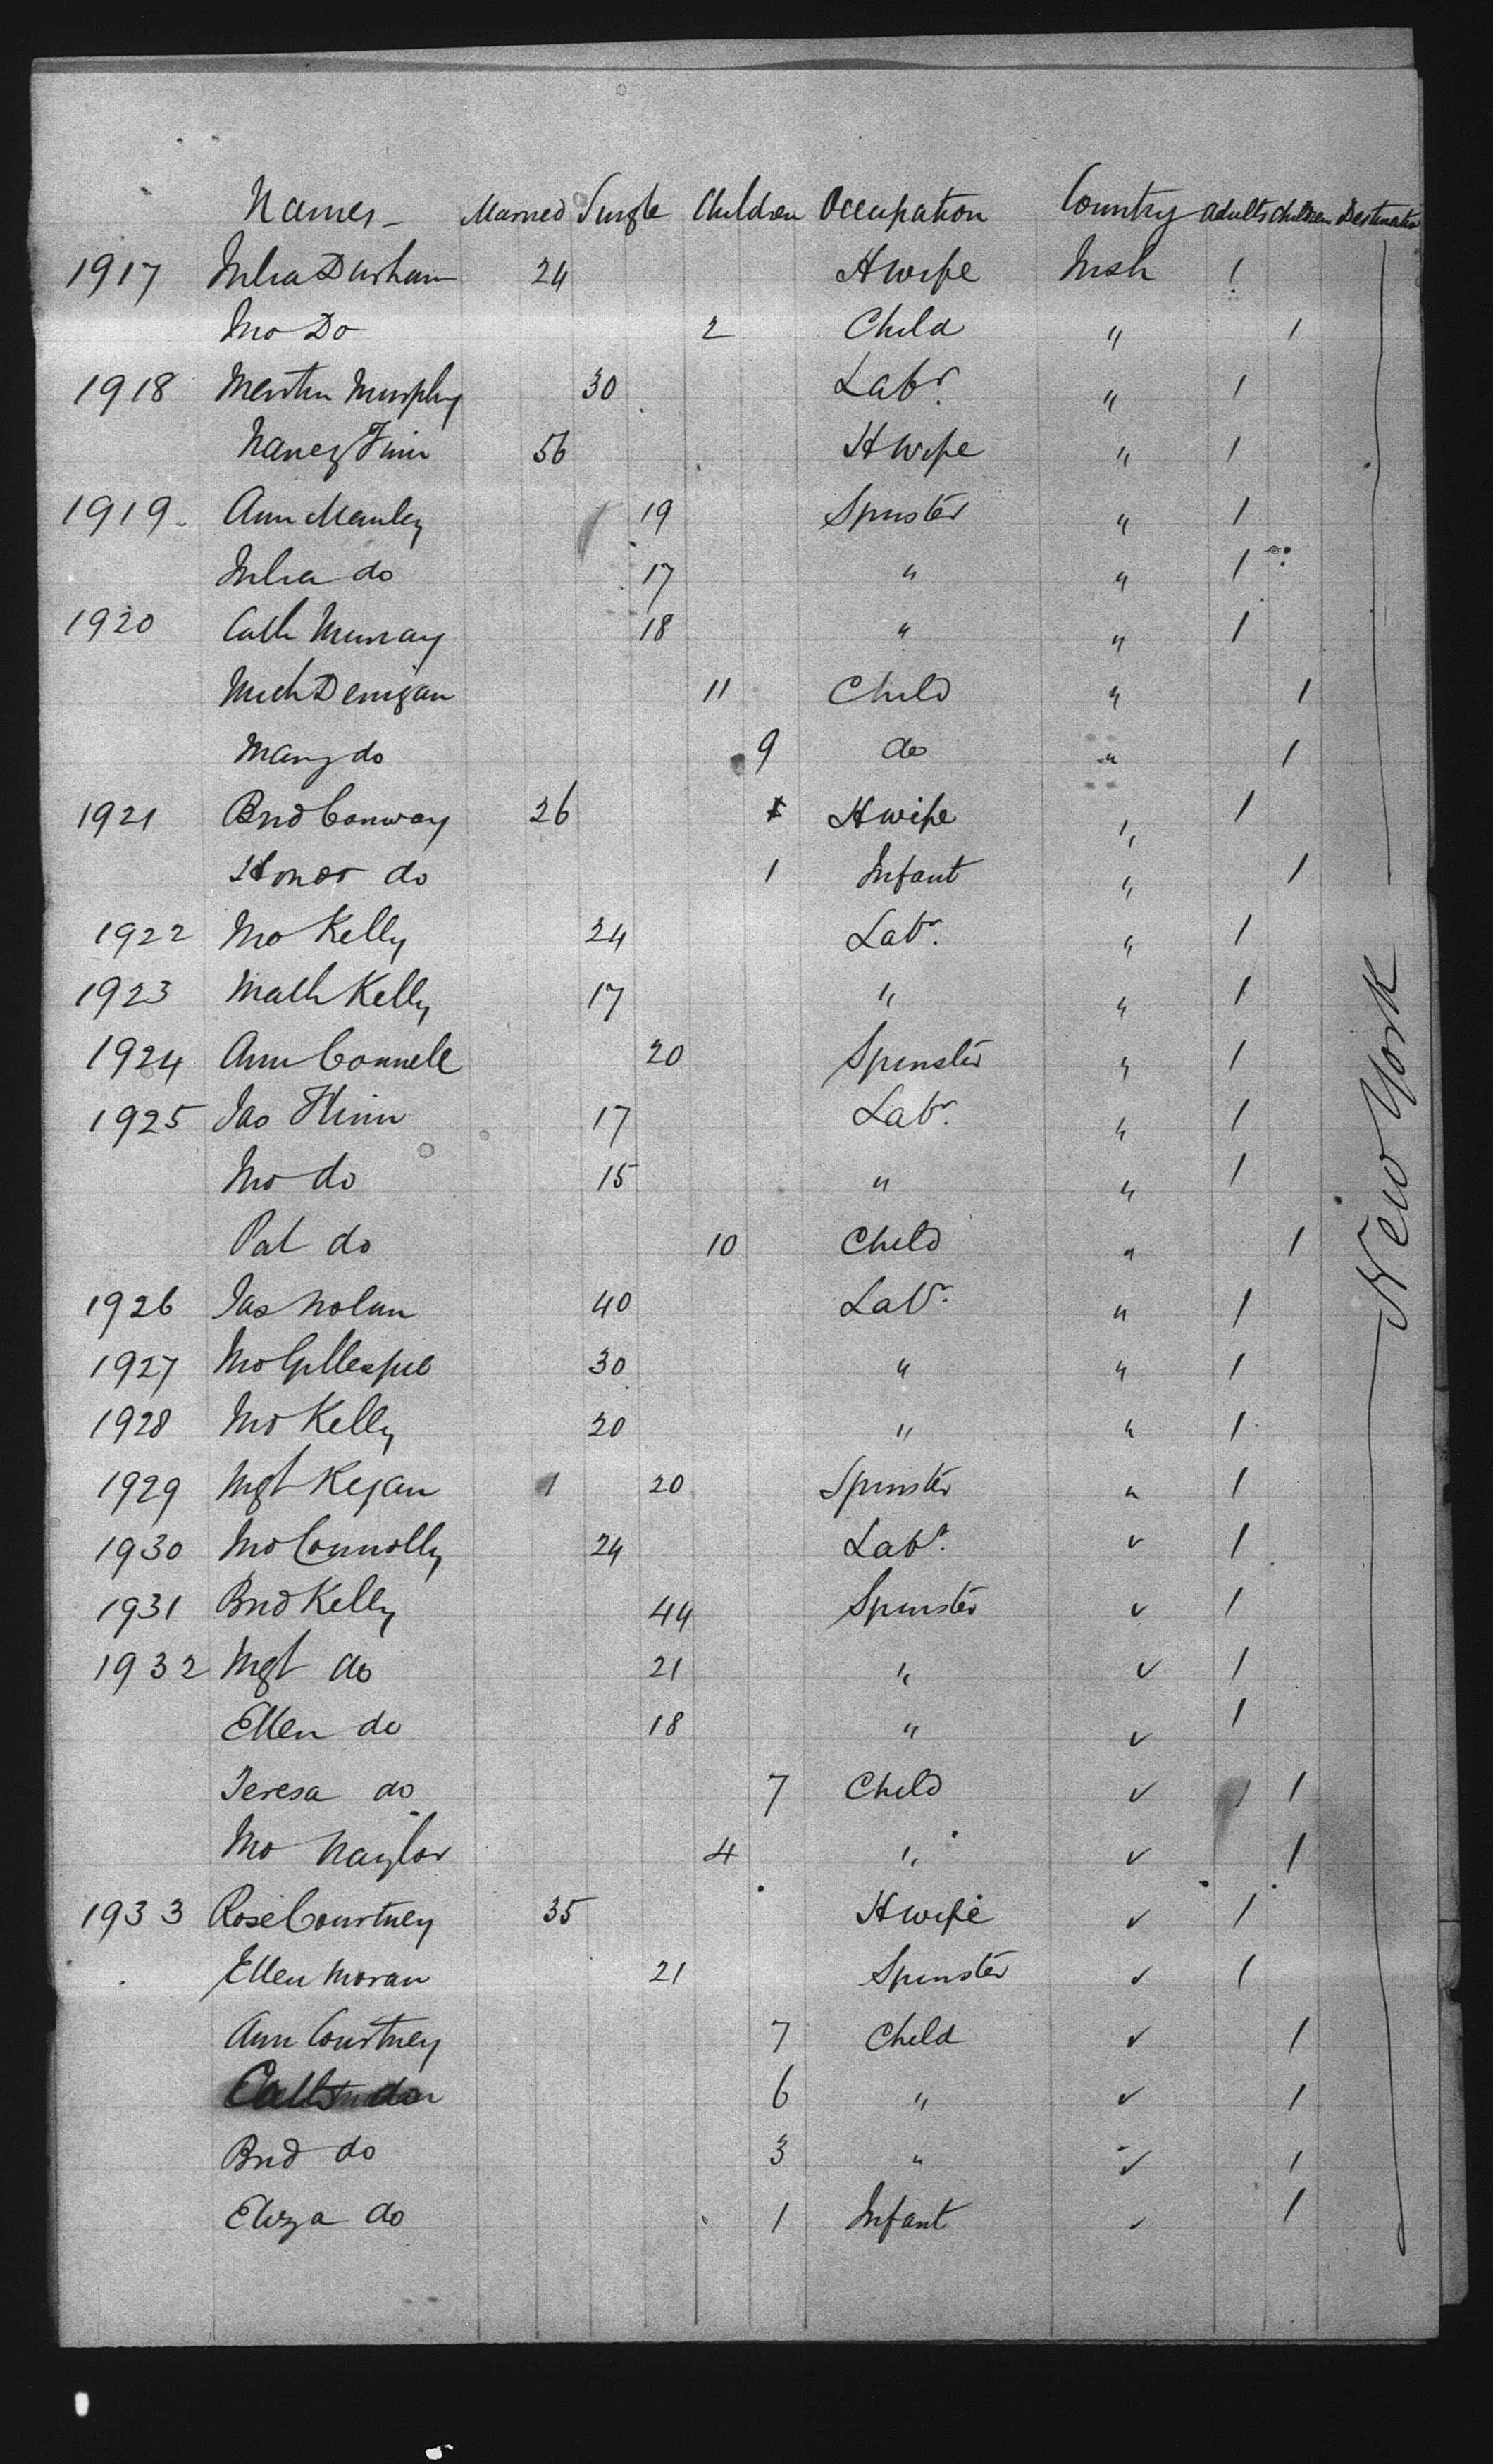 Names - Married Single Children Occupation Country Adults Children Destination
1917 Julia Durham 24 Hwife Irish 1
Jno Do 2 Child " 1
1918 Martin Murphy 30 Labr. " 1
Nancy Finn 56 Hwife " 1
1919 Ann Manley 19 Spinster " 1
Julia do 17 " " 1
1920 Cath Murray 18 " " 1
Mich Denigan 11 Child " 1
Mary do 9 do " 1
1921 Brid Conway 26 Hwife " 1
Honor do 1 Infant " 1
1922 Jno Kelly 24 Labr. " 1
1923 Math Kelly 17 " " 1
1924 Ann Connell 20 Spinster " 1
1925 Jas Flinn 17 Labr. " 1
Jno do 15 " " 1
Pat do 10 Child " 1
1926 Jas Nolan 40 Labr. " 1
1927 Jno Gillespie 30 " " 1
1928 Jno Kelly 20 " " 1
1929 Mgt Kegan 20 Spinster " 1
1930 Jno Connolly 24 Labr. " 1
1931 Brid Kelly 44 Spinster " 1
1932 Mgt do 21 " " 1
Ellen do 18 " " 1
Teresa do 7 Child " 1
Jno Naylor 4 " " 1
1933 Rose Courtney 35 Hwife " 1
Ellen Moran 21 Spinster " 1
Ann Courtney 7 Child " 1
Cath do 6 " " 1
Brid do 3 " " 1
Eliza do 1 Infant " 1
New York